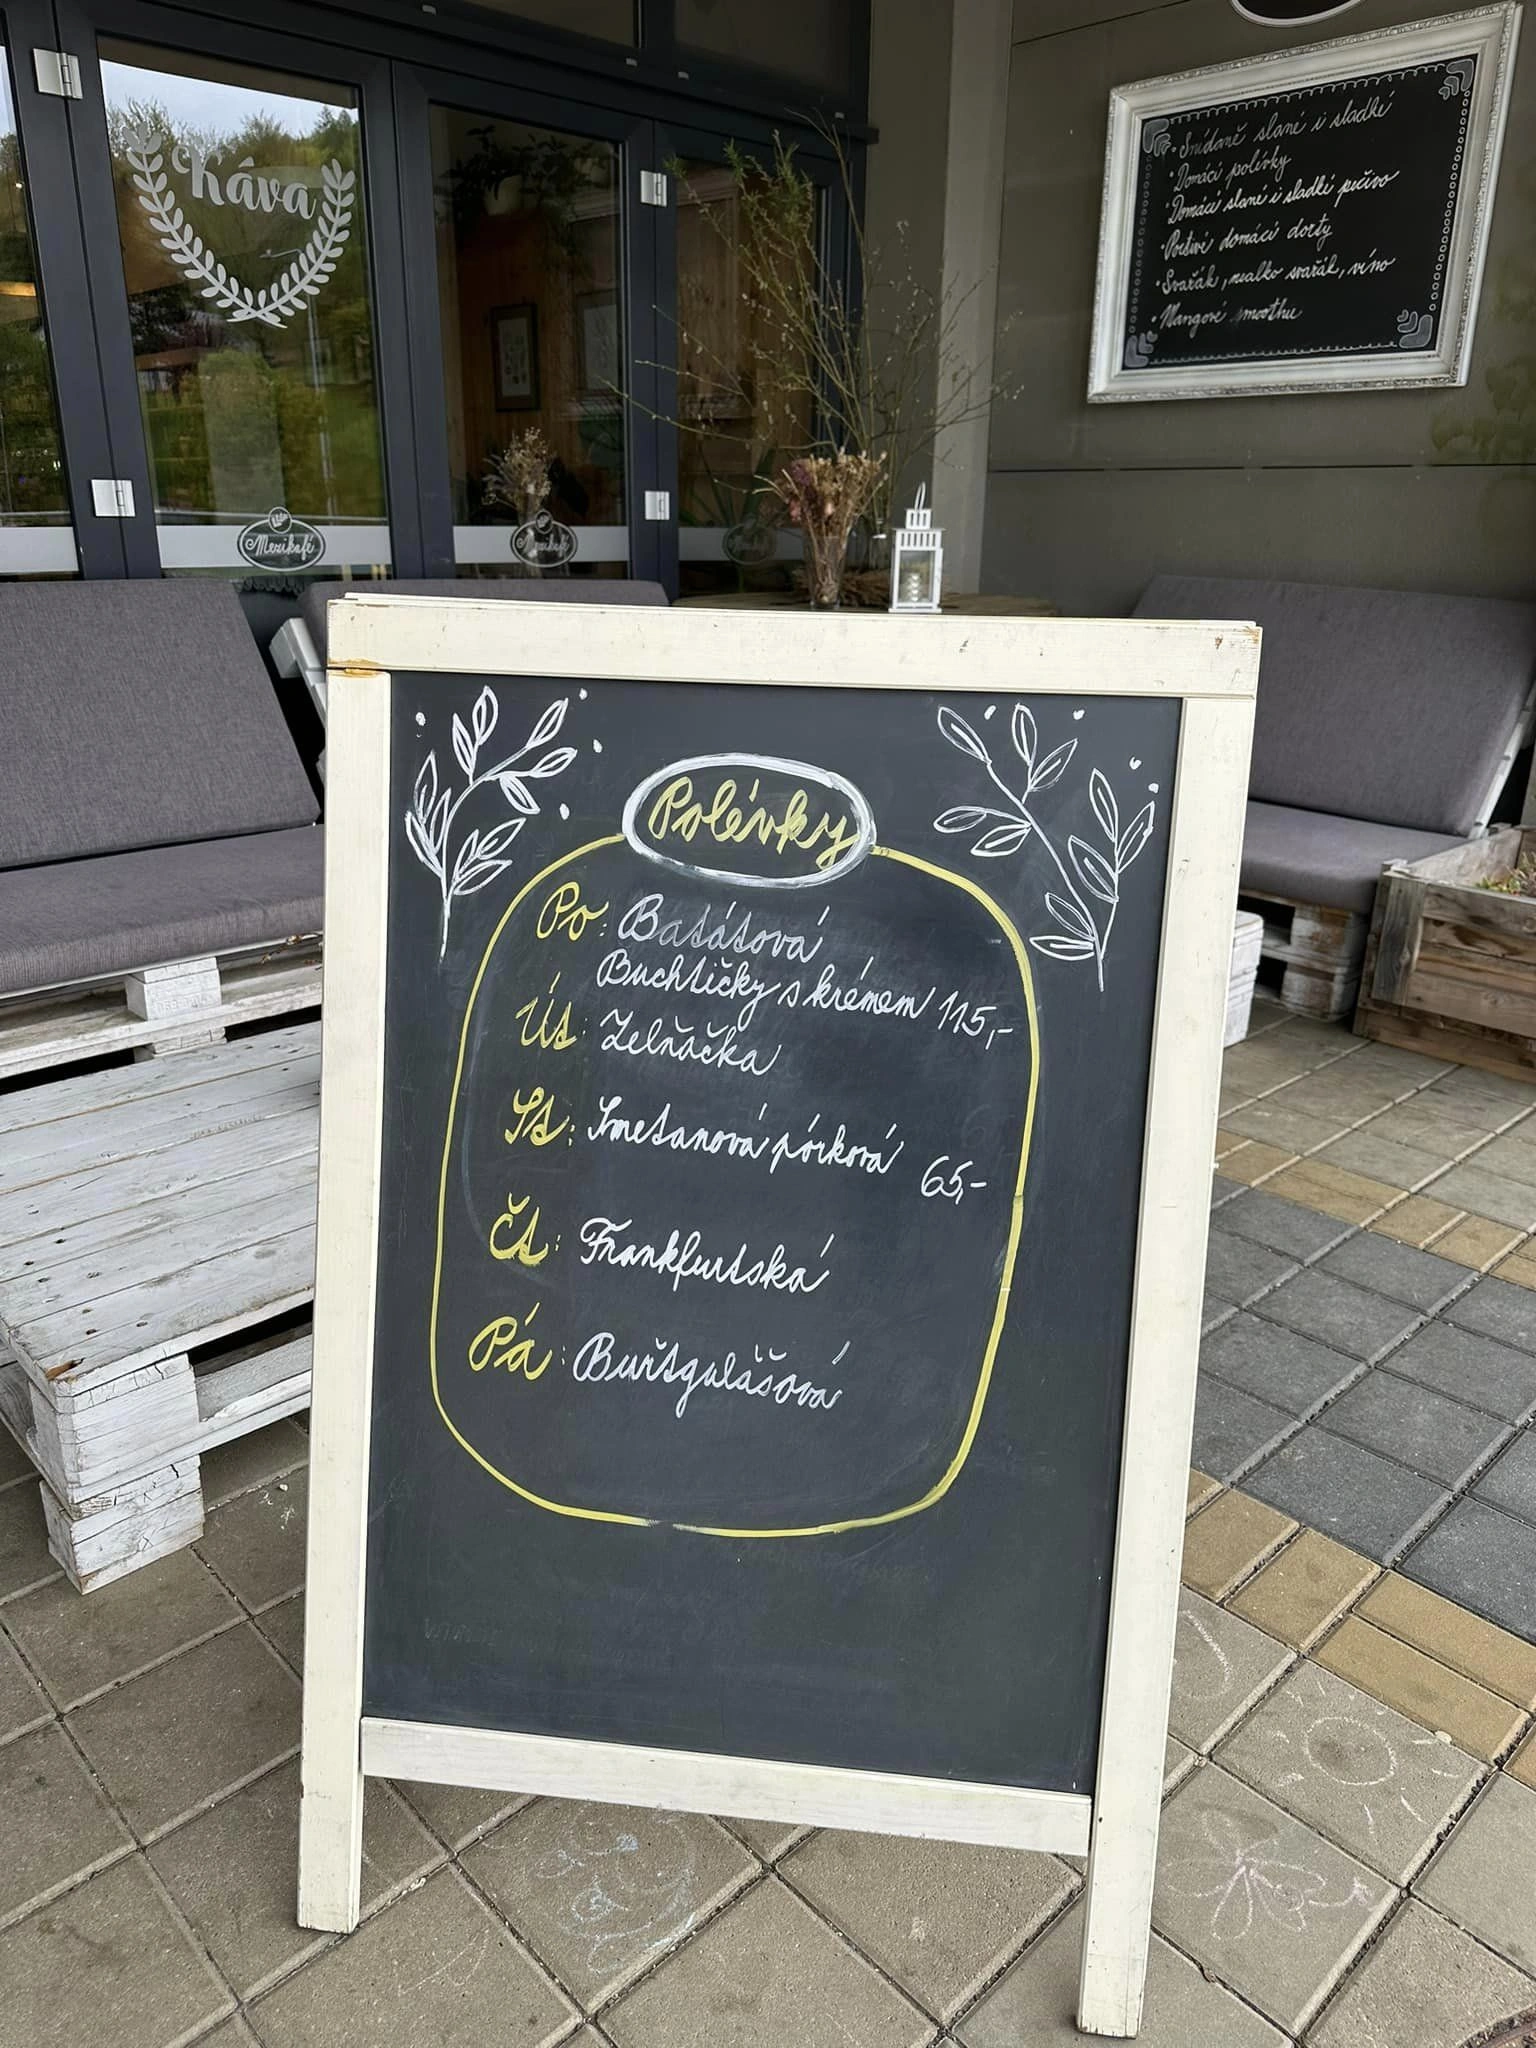 Káva
Mezikafé
Mezikafé
• Snídaně slané i sladké
• Domácí polévky
• Domácí slané i sladké pečivo
• Poctivé domácí dorty
• Svařák, nealko svařák, víno
• Mangové smoothu
Polévky
Po: Batátová
Buchtičky s krémem 115,-
Út: Zelňačka
St: Smetanová pórková
65,-
Čt: Frankfurtská
Pá: Buřtgulášová